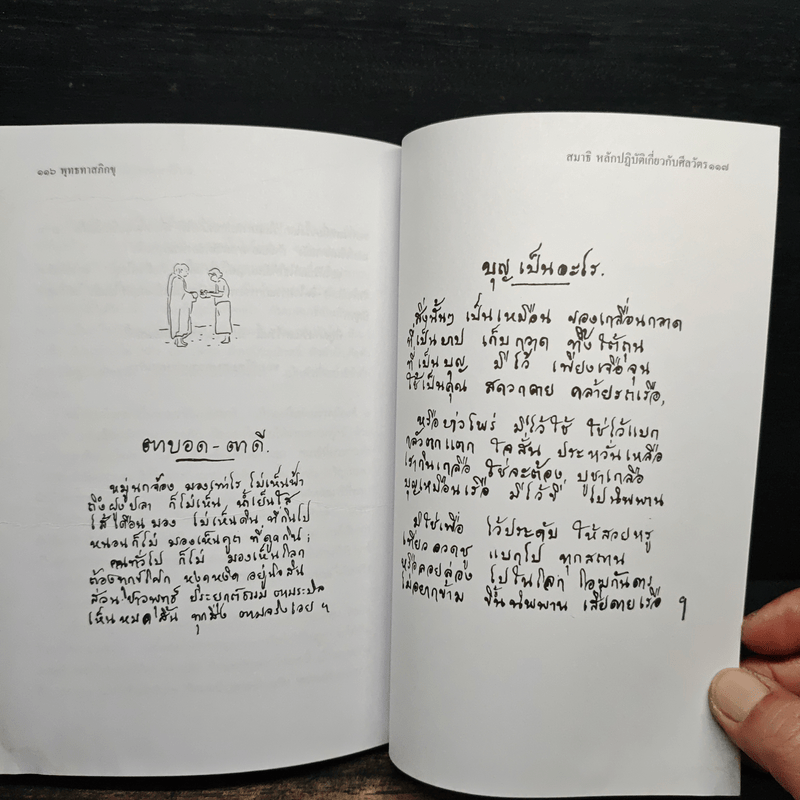 ๑๑๖ พุทธทาสภิกขุ
ตาบอด - ตาดี.
หมู่นกจ้อง มองเท่าไร ไม่เห็นฟ้า
ถึงฝูงปลา ก็ไม่เห็น น้ำเย็นใส
ไส้เดือนมอง ไม่เห็นดิน ที่กินไป
หนอนก็ไม่ มองเห็นคูต ที่ดูดกิน;
คนทั่วไป ก็ไม่ มองเห็นโลก
ต้องทุกข์โศก หงุดหงิด อยู่นิจสิน
ส่วนชาวพุทธ ประยุกต์ธรรม ตามระบิล
เห็นหมดสิ้น ทุกสิ่ง ตามจริงเอย ฯ
สมาธิ หลักปฏิบัติเกี่ยวกับศีลวัตร ๑๑๗
บุญ เป็นอะไร.
สิ่งนั้นๆ เป็นเหมือน ของเกลื่อนกลาด
ที่เป็นบาป เก็บกวาด ทิ้งใต้ถุน
ที่เป็นบุญ มีไว้ เพียงเจือจุน
ใช้เป็นคุณ สะดวกดาย คล้ายรถเรือ,
หรือบ่าวไพร่ มีไว้ใช้ ใช่ไว้แบก
กลัวตกแตก ใจสั่น ประหวั่นเหลือ
เรากินเกลือ ใช่จะต้อง บูชาเกลือ
บุญเหมือนเรือ มีไว้ขี่ ไปนิพพาน
มิใช่เพื่อ ไว้ประดับ ให้สวยหรู
เที่ยวอวดชู แบกไป ทุกสถาน
หรือลอยล่อง ไปในโลก โอฆกันดาร
ไม่อยากข้าม ขึ้นนิพพาน เสียดายเรือ ฯ